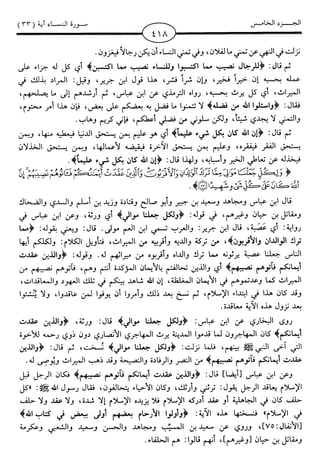 الجــزء الخامـس
سـورة النسـاء آية (٣٣)
٤١٨
نزلت في النهي عن تمني ما لفلان، وفي تمني النساء أن يكن رجالاً فيغزون.
ثم قال: ﴿للرجال نصيب مما اكتسبوا وللنساء نصيب مما اكتسبن﴾ أي كل له جزاء على
عمله بحسبه إن خيراً فخير، وإن شراً فشر، هذا قول ابن جرير، وقيل: المراد بذلك في
الميراث، أي كل يرث بحسبه، رواه الترمذي عن ابن عباس، ثم أرشدهم إلى ما يصلحهم،
فقال: ﴿واسئلوا الله من فضله﴾ لا تتمنوا ما فضل به بعضكم على بعض، فإن هذا أمر محتوم،
والتمني لا يجدي شيئاً، ولكن سلوني من فضلي أعطكم، فإني كريم وهاب.
ثم قال: ﴿إن الله كان بكل شيء عليماً﴾ أي هو عليم بمن يستحق الدنيا فيعطيه منها، وبمن
يستحق الفقر فيفقره، وعليم بمن يستحق الآخرة فيقيضه لأعمالها، وبمن يستحق الخذلان
فيخذله عن تعاطي الخير وأسبابه، ولهذا قال: ﴿إن الله كان بكل شيء عليماً﴾.
﴿وَلِكُلٍّ جَعَلْنَا مَوَالِيَ مِمَّا تَرَكَ الْوَالِدَانِ وَالْأَقْرَبُونَ وَالَّذِينَ عَقَدَتْ أَيْمَانُكُمْ فَآتُوهُمْ نَصِيبَهُمْ إِنَّ
اللَّهَ كَانَ عَلَى كُلِّ شَيْءٍ شَهِيدًا﴾
قال ابن عباس ومجاهد وسعيد بن جبير وأبو صالح وقتادة وزيد بن أسلم والسدي والضحاك
ومقاتل بن حيان وغيرهم، في قوله: ﴿ولكل جعلنا موالي﴾ أي ورثة، وعن ابن عباس في
رواية: أي عَصَبة، قال ابن جرير: والعرب تسمي ابن العم مولى. قال: ويعني بقوله: ﴿مما
ترك الوالدان والأقربون﴾، من تركة والديه وأقربيه من الميراث، فتأويل الكلام: ولكلكم أيها
الناس جعلنا عصبة يرثونه مما ترك والداه وأقربوه من ميراثهم له. وقوله: ﴿والذين عقدت
أيمانكم فآتوهم نصيبهم﴾ أي والذين تحالفتم بالأيمان المؤكدة أنتم وهم، فآتوهم نصيبهم من
الميراث كما وعدتموهم في الأيمان المغلظة، إن الله شاهد بينكم في تلك العهود والمعاقدات،
وقد كان هذا في ابتداء الإسلام، ثم نسخ بعد ذلك وأمروا أن يوفوا لمن عاقدوا، ولا يُنشئوا
بعد نزول هذه الآية معاقدة.
روى البخاري عن ابن عباس: ﴿ولكل جعلنا موالي﴾ قال: ورثة، ﴿والذين عقدت
أيمانكم﴾ كان المهاجرون لما قدموا المدينة يرث المهاجري الأنصاري دون ذوي رحمه للأخوة
التي آخى النبي ﷺ بينهم، فلما نزلت: ﴿ولكل جعلنا موالي﴾ نُسخت، ثم قال: ﴿والذين
عقدت أيمانكم فآتوهم نصيبهم﴾ من النصر والرفادة والنصيحة وقد ذهب الميراث ويُوصي له.
وعن ابن عباس [أيضاً] قال: ﴿والذين عقدت أيمانكم فآتوهم نصيبهم﴾ فكان الرجل قبل
الإسلام يعاقد الرجل يقول: ترثني وأرثك، وكان الأحياء يتحالفون، فقال رسول الله ﷺ: «كل
حلف كان في الجاهلية أو عقد أدركه الإسلام فلا يزيده الإسلام إلا شدة، ولا عقد ولا حلف
في الإسلام» فنسختها هذه الآية: ﴿وأولوا الأرحام بعضهم أولى ببعض في كتاب الله﴾
[الأنفال: ٧٥]، وروي عن سعيد بن المسيّب ومجاهد والحسن وسعيد والشعبي وعكرمة
ومقاتل بن حيان [وغيرهم]، أنهم قالوا: هم الحلفاء.